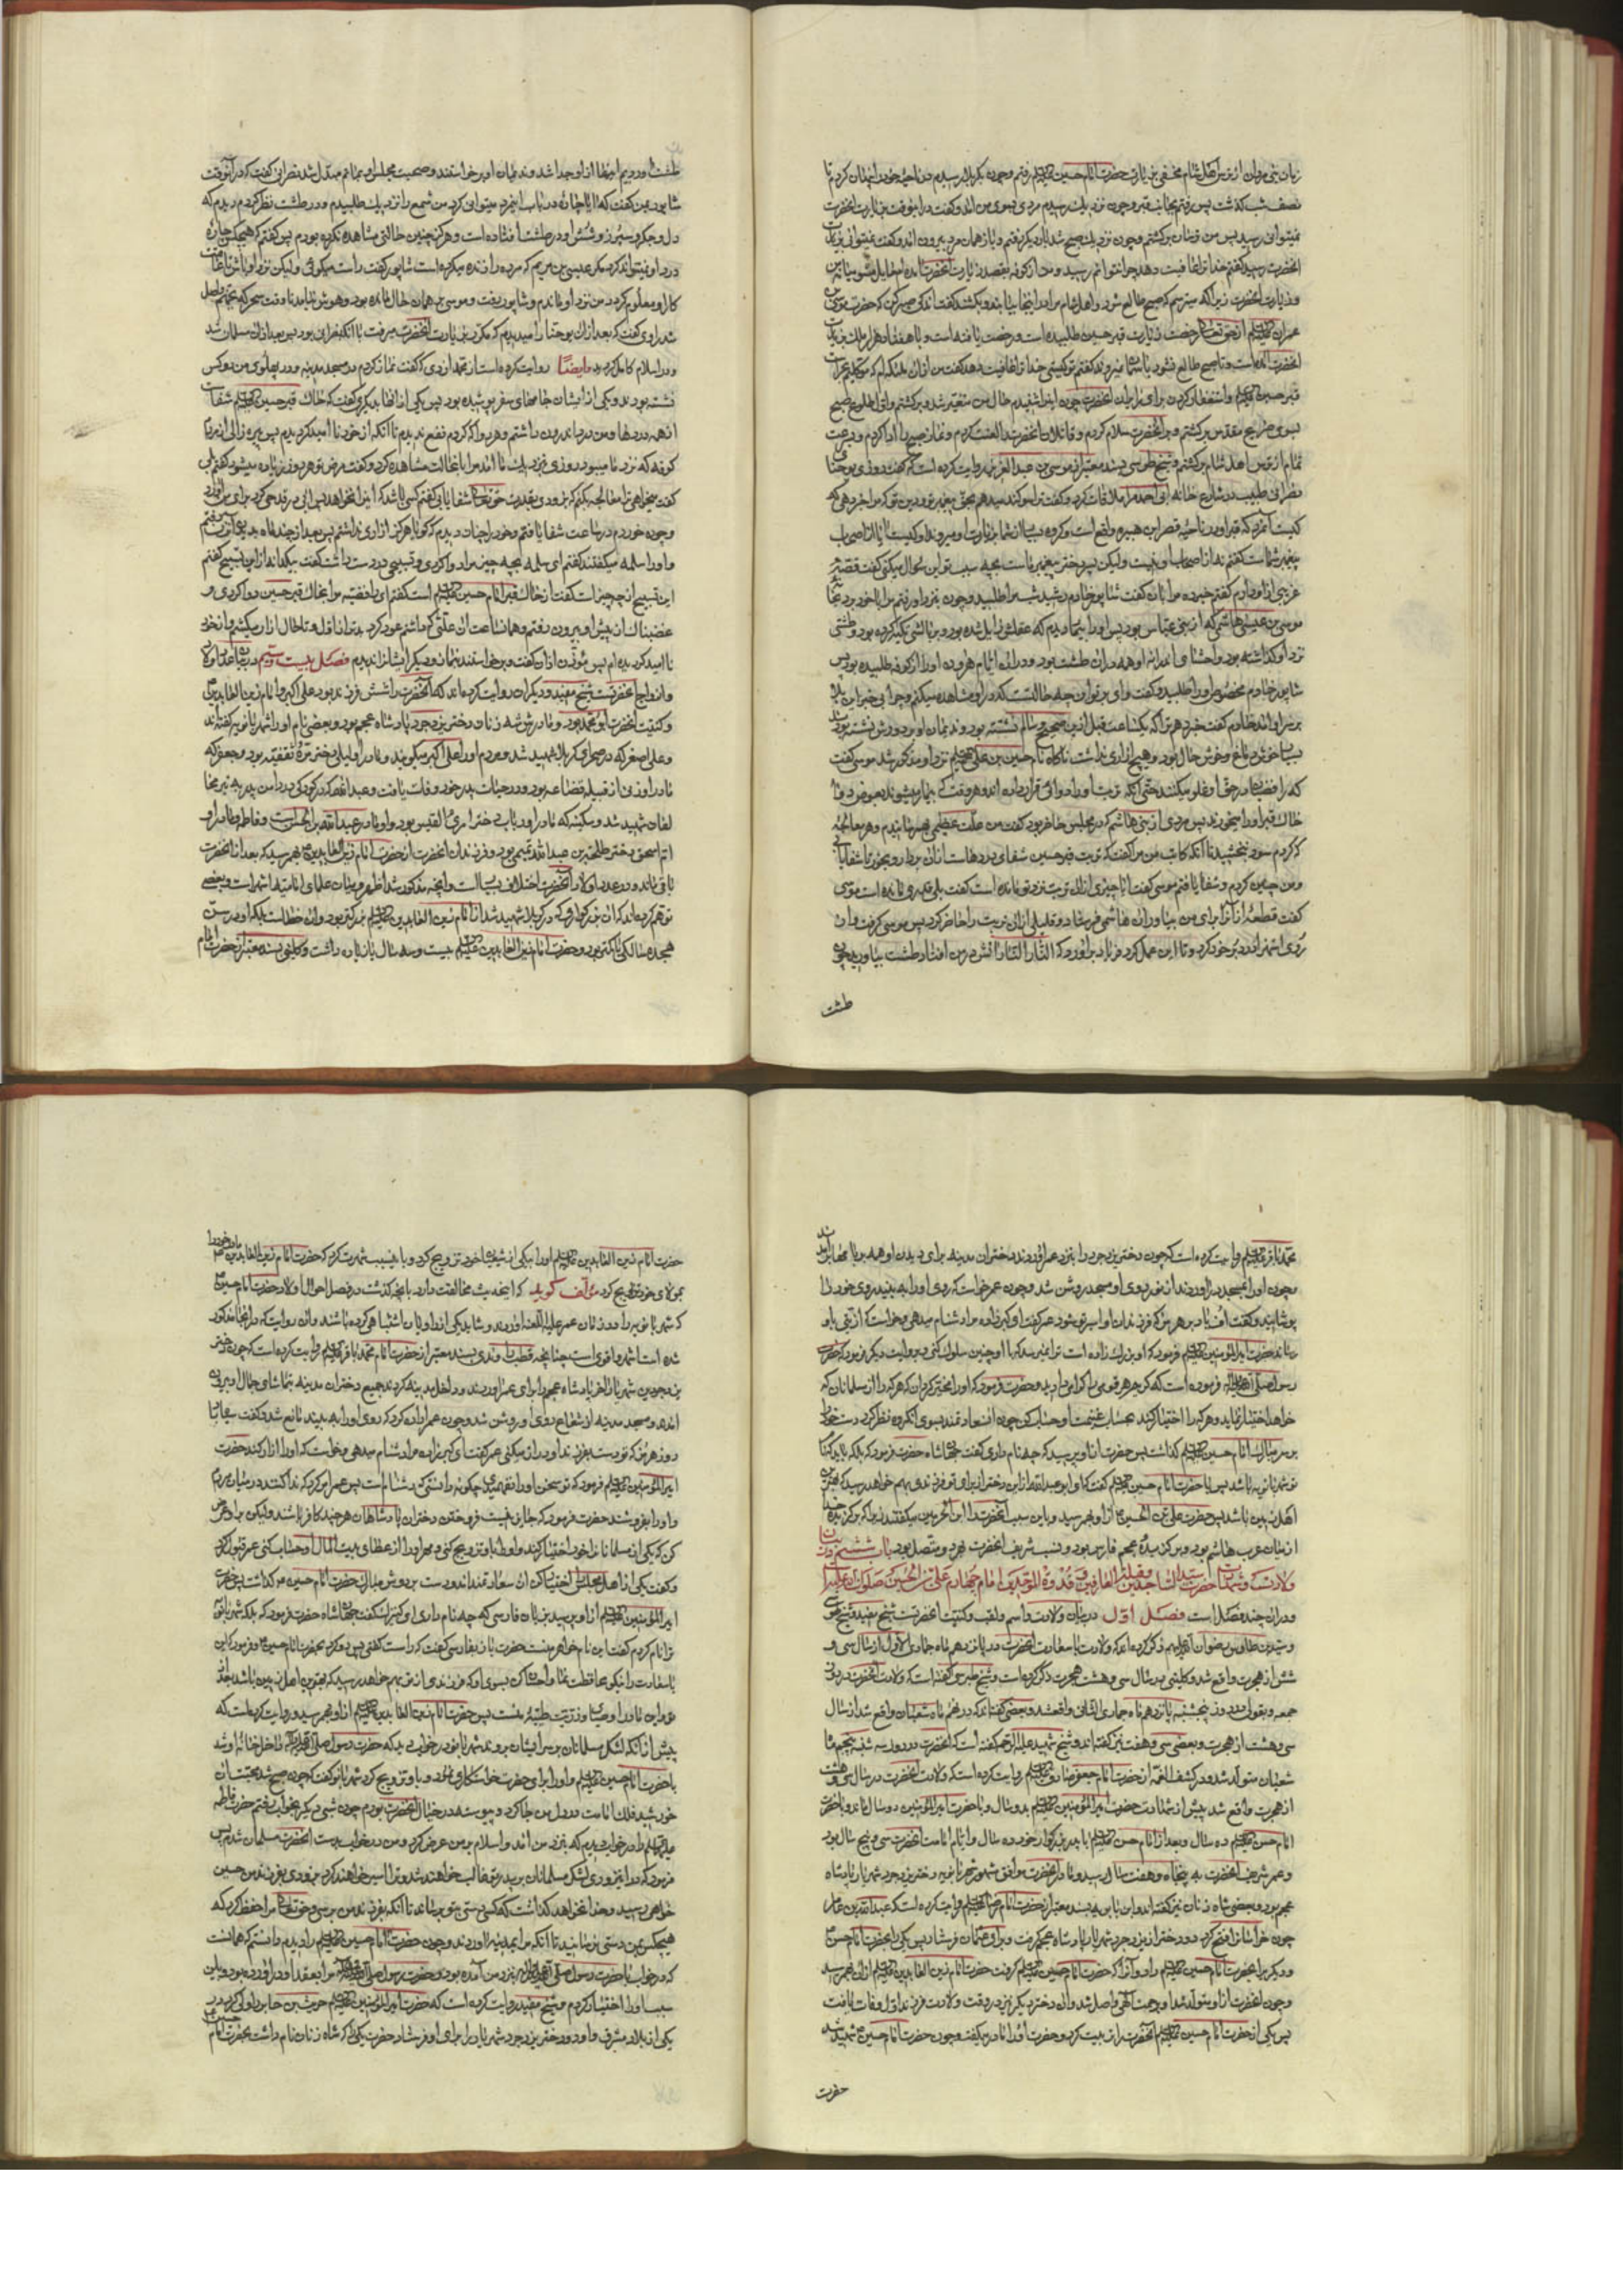 زمان بنی مروان از ترس اهل شام مخفی بزیارت حضرت امام حسین علیه السلم رفتم و چون بکربلا رسیدم در ناحیه خود را پنهان کردم تا
نصف شب گذشت پس رفتم بجانب قبر و چون نزدیک رسیدم مردی بسوی من آمد و گفت در اینوقت بزیارت آنحضرت
نمیتوانی رسید پس من ترسان برگشتم و چون نزدیک صبح شد بار دیگر رفتم و باز همان مرد بیرون آمد و گفت نمیتوانی بزیارت
آنحضرت رسید گفتم خدا ترا عافیت دهد چرا نتوانم رسید و من از کوفه بقصد زیارت آنحضرت آمده‌ام حایل مشو میان من
و زیارت آنحضرت زیرا که میترسم که صبح طالع شود و اهل شام مرا در اینجا بیابند و بکشند گفت اندکی صبر کن که حضرت موسی بن
عمران علیه السلم از حق تعالی رخصت زیارت قبر حسین طلبیده است و رخصت یافته است و با هفتاد هزار ملک بزیارت
آنحضرت آمده است و تا صبح طالع نشود باسمان نمیروند گفتم تو کیستی خدا ترا عافیت دهد گفت من از آن ملائکه‌ام که موکلیم بحراست
قبر حسین علیه السلم و استغفار کردن برای زایران آنحضرت چون این را شنیدم حال من متغیر شد و برگشتم و بعد از طلوع صبح
بسوی ضریح مقدس برگشتم و بر آنحضرت سلام کردم و قاتلان آنحضرت را لعنت کردم و نماز صبح را ادا کردم و بسرعت
تمام از ترس اهل شام برگشتم و شیخ طوسی بسند معتبر از موسی بن عبد العزیز روایت کرده است که گفت روزی یوحنای
نصرانی طبیب در شارع خانه ابی احمد مرا ملاقات کرد و گفت ترا سوگند میدهم بحق پیغمبر تو و دین تو که مرا خبر دهی که
کیست آنمرد که قبر او در ناحیه قصر ابن هبیره واقع است و گروه بسیار از شما بزیارت او میروند او کیست آیا از اصحاب
پیغمبر شماست گفتم نه از اصحاب او نیست ولیکن پسر دختر پیغمبر ماست بچه سبب تو این سؤال میکنی گفت قصه
غریبی از او دارم گفتم خبر ده مرا بآن گفت شاپور خادم رشید شب مرا طلبید و چون بنزد او رفتم مرا با خود برد بخانه
موسی بن عیسی هاشمی که از بنی عباس بود پس او را بیمار دیدم که عقلش زایل شده بود و بر بالشی تکیه کرده بود و طشتی
نزد او گذاشته بود و احشای اندرون او همه در آن طشت بود و در آن ایام هرون او را از کوفه طلبیده بود پس
شاپور خادم مخصوص او را طلبید و گفت وای بر تو این چه حالتست که در او مشاهده میکنم و چرا چنین این بلا
بر سر او آمد خادم گفت خبر دهم ترا که یکساعت قبل از این صحیح و سالم نشسته بود و ندیمان او بر دورش نشسته بودند
بسیار خوش دماغ و خوش حال بود و هیچ آزاری نداشت ناگاه نام حسین بن علی علیه السلم نزد او مذکور شد موسی گفت
که رافضیان در حق او غلو میکنند حتی آنکه تربت او را دوائی قرار داده‌اند و هر وقت که بیمار میشوند بعوض دوا
خاک قبر او را میخورند پس مردی از بنی هاشم که در مجلس حاضر بود گفت من علت عظیمی بهم رسانیدم و هر معالجه
که کردم سود نبخشید تا آنکه کاتب من مرا گفت که تربت قبر حسین شفای دردهاست از آن بردار و بخور تا شفا یابی
و من چنین کردم و شفا یافتم موسی گفت آیا چیزی از آن تربت نزد تو مانده است گفت بلی قدری مانده است موسی
گفت قطعهٔ از آن را برای من بیاور آن هاشمی فرستاد و قلیلی از آن تربت را حاضر کرد پس موسی گرفت و از
روی استهزا در دبر خود کرد و تا این عمل کرد فریاد برآورد که النار النار آتش در من افتاد طشت بیاورید چون
طشت
طشت آوردیم اینها از او جدا شد و ندیمان او برخواستند و صحبت مجلس او بماتم مبدل شد نصرانی گفت که در آنوقت
شاپور بمن گفت که آیا چارهٔ در باب این مرد میتوانی کرد من شمع را نزدیک طلبیدم و در طشت نظر کردم دیدم که
دل و جگر و سپرز و شش او در طشت افتاده است و هرگز چنین حالتی مشاهده نکرده بودم پس گفتم که هیچکس چاره
درد او نمیتواند کرد مگر عیسی بن مریم که مرده را زنده میکرده است شاپور گفت راست میگوئی ولیکن نزد او باش تا عاقبت
کار او معلوم گردد من نزد او ماندم و شاپور رفت و موسی بر همان حال مانده بود و بهوش نیامد تا وقت سحر که بجهنم واصل
شد راوی گفت که بعد از آن یوحنا را میدیدم که مکرر بزیارت آنحضرت میرفت با آنکه نصرانی بود پس بعد از آن مسلمان شد
و در اسلام کامل گردید وایضاً روایت کرده است از محمد ازدی که گفت نماز کردم در مسجد مدینه و در پهلوی من دو کس
نشسته بودند و یکی از ایشان جامهای سفر پوشیده بود پس یکی از آنها بدیگری گفت که خاک قبر حسین علیه السلم شفاست
از همه دردها و من درد اندرون داشتم و هر دوا که کردم نفع ندیدم تا آنکه از خود ناامید گردیدم پس پیره زالی از مردم
کوفه که نزد ما میبود روزی بنزدیک ما آمد مرا باین حالت مشاهده کرد و گفت مرض تو هر روز زیاده میشود گفتم بلی
گفت میخواهی ترا معالجه بکنم که بزودی بقدرت حق تعالی شفا یابی گفتم کسی باشد که این را نخواهد پس آبی در قدحی کرد برای من آورد
و چون خوردم در ساعت شفا یافتم و خود را چنان دیدم که گویا هرگز آزاری نداشتم پس بعد از چند ماه بدیدن آن زن رفتم
و او را سلمه میگفتند گفتم ای سلمه بچه چیز مرا دوا کردی و تسبیحی در دست داشت گفت بیکدانه از این تسبیح گفتم
این تسبیح از چه چیز است گفت از خاک قبر امام حسین علیه السلم است گفتم ای رافضیه مرا بخاک قبر حسین دوا کردی و
غضبناک از پیش او بیرون رفتم و همان ساعت آن علتی که داشتم عود کرد بدتر از اول و تا حال آزار میکشم و از خود
ناامید گردیده‌ام پس مؤذن اذان گفت و برخواستند بنماز و دیگر ایشان را ندیدم فصل بیست و ششم در بیان عدد اولاد
و ازواج آنحضرتست شیخ مفید و دیگران روایت کرده‌اند که آنحضرت را شش فرزند بود علی اکبر و امام زین العابدین
و کنیت آنحضرت ابو محمد بود و مادرش شه زنان دختر یزدجرد پادشاه عجم بود و بعضی نام او را شهربانو نیز گفته‌اند
و علی اصغر که در صحرای کربلا شهید شد و مردم او را علی اکبر میگویند و مادر او لیلی دختر مرهٔ ثقفیه بود و جعفر که
مادر او زنی از قبیله قضاعه بود و در حیات پدر خود وفات یافت و عبدالله که در کودکی در دامن پدر به تیر مخا
لفان شهید شد و سکینه که مادر او رباب دختر امرئ القیس بود و او مادر عبدالله بن الحسن است و فاطمه و مادر او
ام اسحق دختر طلحه بن عبیدالله تیمی بود و فرزندان آنحضرت از حضرت امام زین العابدین بهم رسید که بعد از آنحضرت
باقی ماند و در عدد اولاد آنحضرت اختلاف بسیار است و آنچه مذکور شد اظهر و میان علمای امامیه اشهر است و بعضی
توهم کرده‌اند که آن بزرگواری که در کربلا شهید شد از امام زین العابدین علیه السلم بزرگتر بود و آن خطاست بلکه او در سن
هجده سالگی یا کمتر بود و حضرت امام زین العابدین علیه السلم بیست و سه سال یا زیاده داشت و کلینی بسند معتبر از حضرت امام
محمد باقر علیه السلم روایت کرده است که چون دختر یزدجرد را بنزد عمر آوردند دختران مدینه برای دیدن او همه بر بامها بر آمدند
و چون او را بمسجد در آوردند از نور روی او مسجد روشن شد و چون عمر خواست که روی او را به بیند روی خود را
پوشانید و گفت اف باد بر هرمز که فرزندان او اسیر تو شود عمر گفت او گبرزاده مرا دشنام میدهی و خواست که آزاری باو
رساند حضرت امیر المؤمنین علیه السلم فرمود که او بزرگ زاده است ترا نمیرسد که با او چنین سلوک کنی و بروایت دیگر فرمود که حضرت
رسول صلی الله علیه و آله فرموده است که کریم هر قومی را گرامی دارید و حضرت فرمود که او را مخیر گردان که هر که را از مسلمانان که
خواهد اختیار نماید و هر که را اختیار کند بحساب غنیمت او حساب کن چون آن سعادتمند بسوی آن گروه نظر کرد دست خود را
بر سر مبارک امام حسین علیه السلم گذاشت پس حضرت از او پرسید که چه نام داری گفت جهانشاه حضرت فرمود که بلکه باید که نام
تو شهربانویه باشد پس با حضرت امام حسین علیه السلم گفت که ای ابو عبدالله از این دختر از برای تو فرزندی بهم خواهد رسید که بهترین
اهل زمین باشد پس حضرت علی بن الحسین از او بهم رسید و باین سبب آنحضرت را ابن الخیرتین میگفتند زیرا که برگزیده خدا
از میان عرب هاشم بود و برگزیدهٔ عجم فارس بود و نسب شریف آنحضرت بهر دو متصل بود باب ششم در بیان
ولادت و شهادت حضرت سید الساجدین و قبلة العارفین و قدوة الموحدین امام چهارم علی بن الحسین صلوات الله علیهما
و در آن چند فصل است فصل اول در بیان ولادت و اسم و لقب و کنیت آنحضرتست شیخ مفید و شیخ طوسی
و سید بن طاوس رضوان الله علیهم ذکر کرده‌اند که ولادت با سعادت آنحضرت در پانزدهم ماه جمادی الاول از سال سی و
شش از هجرت واقع شد و کلینی در سال سی و هشت هجرت ذکر کرده است و شیخ طبرسی گفته است که ولادت آنحضرت در روز
جمعه و بقولی در روز پنجشنبه پانزدهم ماه جمادی الثانی واقع شد و بعضی گفته‌اند که در نهم ماه شعبان واقع شد از سال
سی و هشت از هجرت و بعضی سی و هفت نیز گفته‌اند و شیخ شهید علیه الرحمه گفته است که آنحضرت در روز سه شنبه پنجم ماه
شعبان متولد شد و در کشف الغمه از حضرت امام جعفر صادق علیه السلم روایت کرده است که ولادت آنحضرت در سال سی و هشت
از هجرت واقع شد پیش از شهادت حضرت امیر المؤمنین علیه السلم بدو سال و با حضرت امیر المؤمنین دو سال ماند و با حضرت
امام حسن علیه السلم ده سال و بعد از امام حسن علیه السلم با پدر بزرگوار خود ده سال و ایام امامت آنحضرت سی و پنج سال بود
و عمر شریف آنحضرت به پنجاه و هفت سال رسید و مادر آنحضرت موافق مشهور شهربانویه دختر یزدجرد شهریار پادشاه
عجم بود و بعضی شاه زنان نیز گفته‌اند و ابن بابویه بسند معتبر از حضرت امام رضا علیه السلم روایت کرده است که عبدالله بن عامر
چون خراسان را فتح کرد دو دختر از یزدجرد شهریار پادشاه عجم گرفت و برای عثمان فرستاد پس یکی را بحضرت امام حسن
و دیگری را بحضرت امام حسین علیه السلم داد و آن را که حضرت امام حسین علیه السلم گرفت حضرت امام زین العابدین علیه السلم از آن بهم رسید
و چون آنحضرت از او متولد شد او برحمت الهی واصل شد و آن دختر دیگر نیز در وقت ولادت فرزند اول وفات یافت
پس یکی از حضرت امام حسین علیه السلم آنحضرت را تربیت کرد و حضرت او را مادر میگفت و چون حضرت امام حسین شهید شد
حضرت
حضرت امام زین العابدین علیه السلم او را بیکی از شیعیان خود تزویج کرد و باینسبب شهرت کرد که حضرت امام زین العابدین مادر خود را
بمولای خود تزویج کرد مؤلف گوید که این حدیث مخالفت دارد بآنچه گذشت در فصل احوال اولاد حضرت امام حسین
که شهربانویه را در زمان عمر علیه اللعنه آوردند و شاید یکی از راویان اشتباهی کرده باشند و آن روایت که در اینجا مذکور
شده است اشهر و اقوی است چنانچه قطب راوندی بسند معتبر از حضرت امام محمد باقر علیه السلم روایت کرده است که چون دختر
یزدجرد بن شهریار آخر پادشاه عجم را برای عمر آوردند و داخل مدینه کردند جمیع دختران مدینه بتماشای جمال او بیرون
آمدند و مسجد مدینه از شعاع روی او روشن شد و چون عمر اراده کرد که روی او را به بیند مانع شد و گفت سیاه باد
روز هرمز که تو دست بفرزند او دراز میکنی عمر گفت ای گبرزاده مرا دشنام میدهی و خواست که او را آزار کند حضرت
امیر المؤمنین علیه السلم فرمود که تو سخن او را نفهمیدی چگونه دانستی که دشنام است پس عمر امر کرد که ندا کنند در میان مردم
و او را بفروشند حضرت فرمود که جایز نیست فروختن دختران پادشاهان هر چند کافر باشند ولیکن بر او عرض
کن که یکی از مسلمانان را خود اختیار کند و او را باو تزویج کنی و مهر او را از عطای بیت المال او حساب کنی عمر قبول کرد
و گفت یکی از اهل مجلس را اختیار کن آن سعادتمند آمد و دست بر دوش مبارک حضرت امام حسین گذاشت پس حضرت
امیر المؤمنین علیه السلم از او پرسید بزبان فارسی که چه نام داری ای کنیزک گفت جهانشاه حضرت فرمود که بلکه شهربانویه
ترا نام کردم گفت این نام خواهر منست حضرت باز بفارسی گفت که راست گفتی پس رو کرد بحضرت امام حسین و فرمود که این
باسعادت را نیکو محافظت نما و احسان کن بسوی او که فرزندی از تو بهم خواهد رسید که بهترین اهل زمین باشد بعد از
تو و این مادر اوصیا و ذریت طیبهٔ منست پس حضرت امام زین العابدین علیه السلم از او بهم رسید و روایت کرده است که
پیش از آنکه لشکر مسلمانان بر سر ایشان بروند شهربانو در خواب دید که حضرت رسول صلی الله علیه و آله داخل خانهٔ او شد
با حضرت امام حسین علیه السلم و او را برای حضرت خواستگاری نمود و باو تزویج کرد شهربانو گفت که چون صبح شد محبت آن
خورشید فلک امامت در دل من جا کرد و پیوسته در خیال آنحضرت بودم چون شب دیگر بخواب رفتم حضرت فاطمه
علیها السلم را در خواب دیدم که بنزد من آمد و اسلام بر من عرض کرد و من در خواب بدست آنحضرت مسلمان شدم پس
فرمود که در این زودی لشکر مسلمانان بر پدر تو غالب خواهند شد و ترا اسیر خواهند کرد و بزودی بفرزند من حسین
خواهی رسید و خدا نخواهد گذاشت که کسی دستی بتو برساند تا آنکه بفرزند من برسی و حق تعالی مرا حفظ کرد که
هیچکس بمن دستی نرسانید تا آنکه مرا بمدینه آوردند و چون حضرت امام حسین علیه السلم را دیدم دانستم که همانست
که در خواب با حضرت رسول صلی الله علیه و آله بنزد من آمده بود و حضرت رسول صلی الله علیه و آله مرا بعقد او در آورده بود و باین
سبب او را اختیار کردم و شیخ مفید روایت کرده است که حضرت امیر المؤمنین علیه السلم حریث بن جابر را والی گردانید در
یکی از بلاد مشرق و او دو دختر یزدجرد شهریار را برای او فرستاد حضرت یکی را که شاه زنان نام داشت بحضرت امام حسین